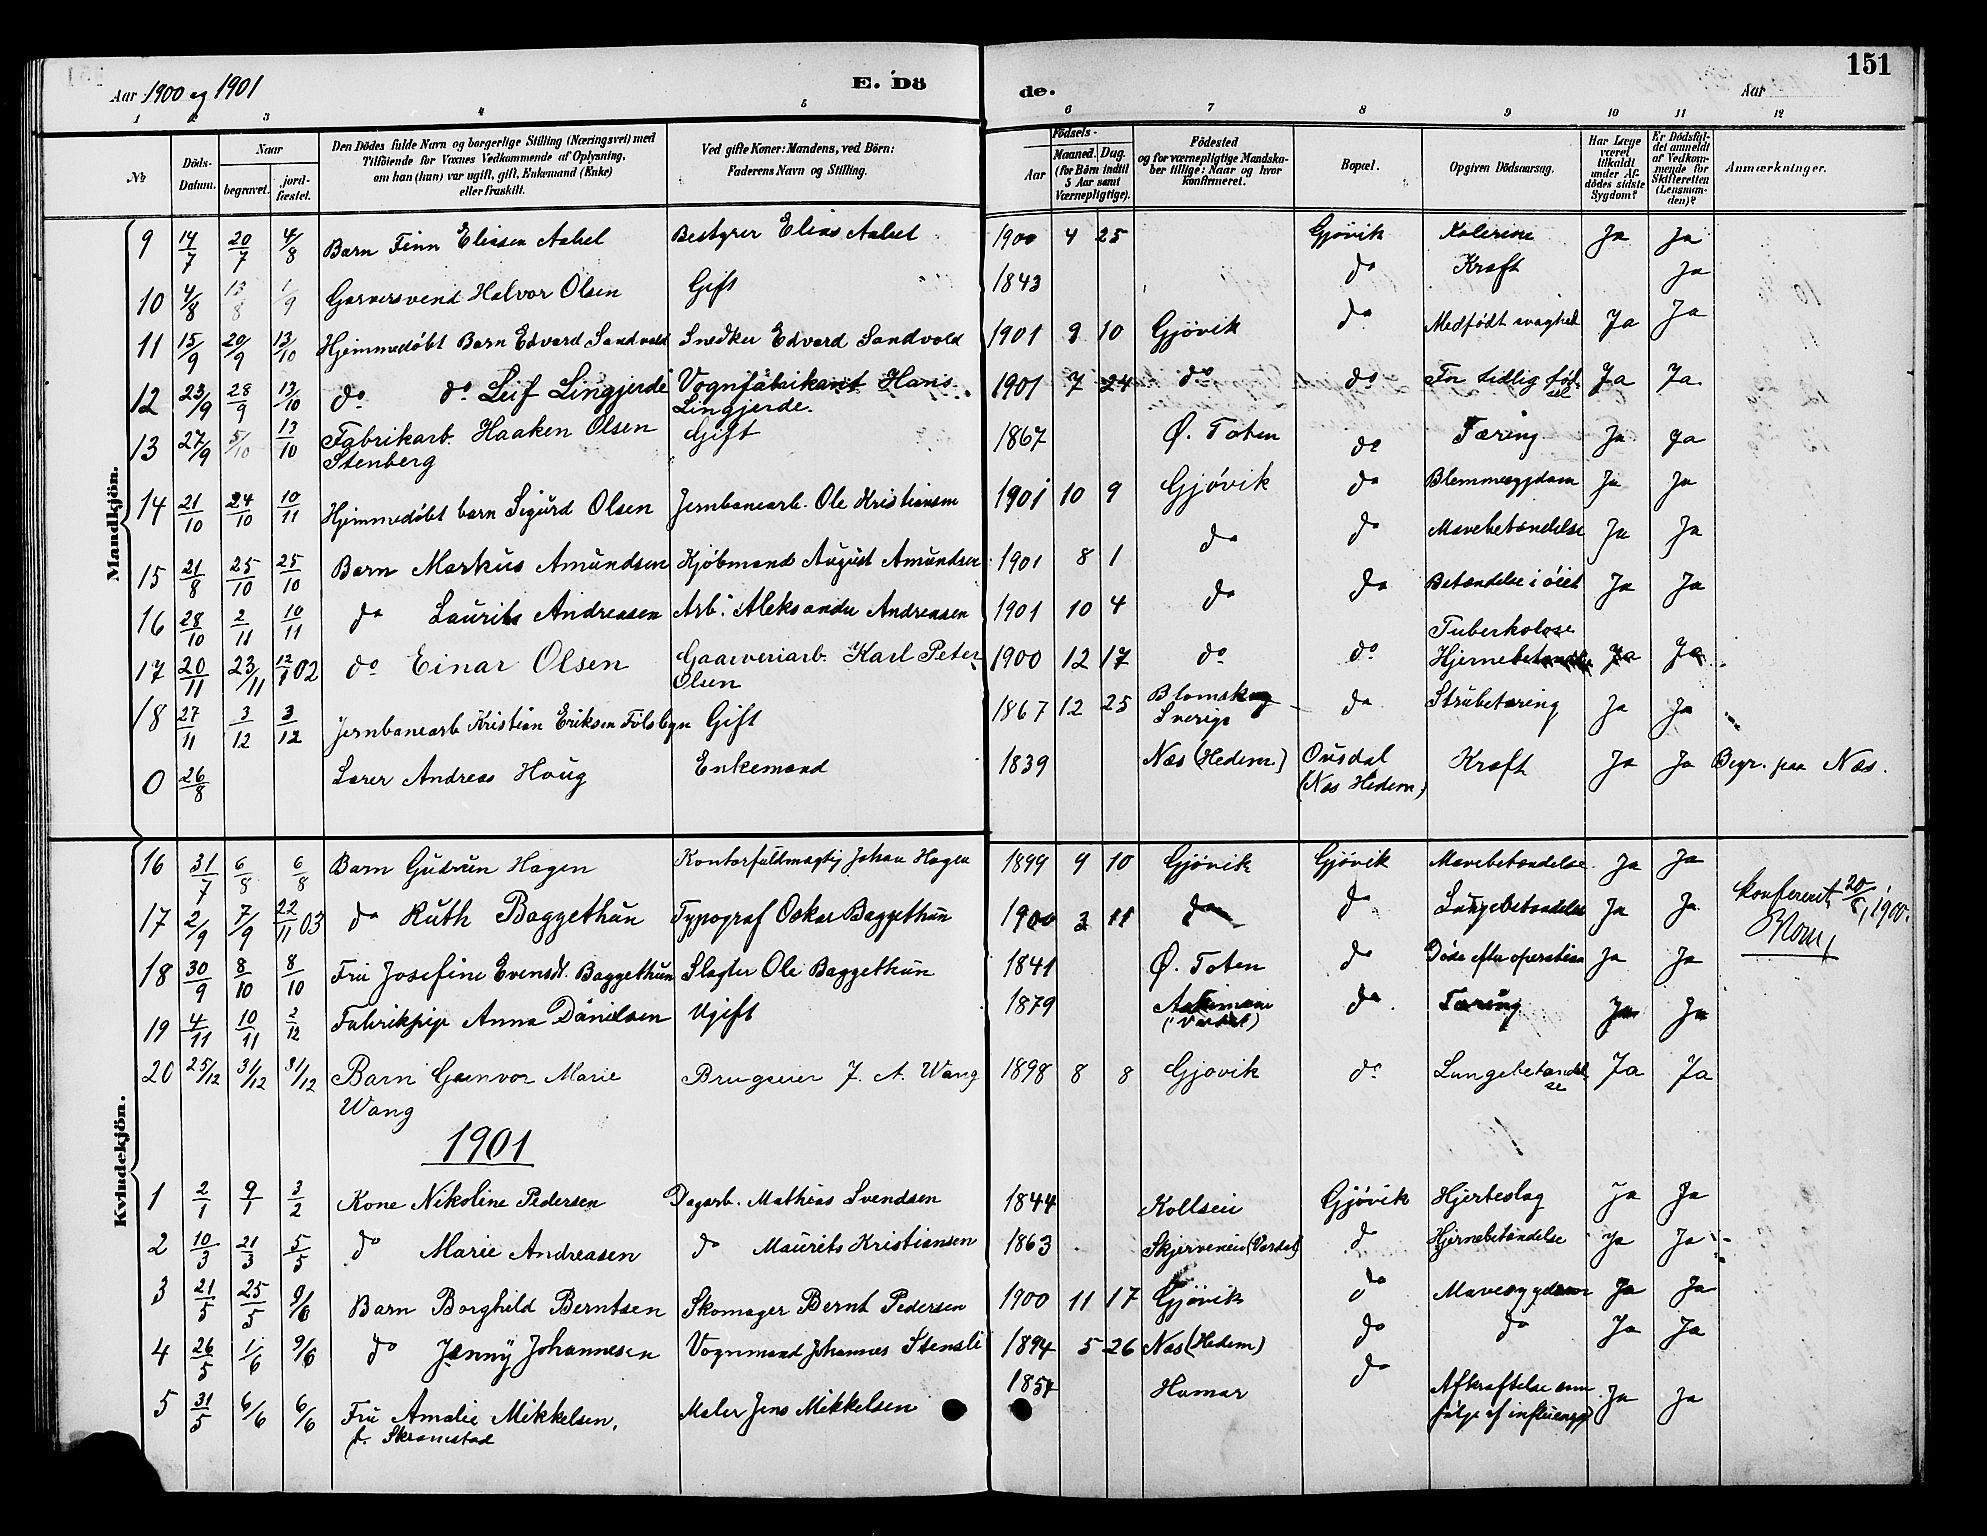 Aar 1900 og 1901 E. Dö de. Aar 151
1 2 3 4 5 6 7 8 9 10 11 12
№ Döds-Datum. Naar begravet. jord-fæstet. Den Dödes fulde Navn og borgerlige Stilling (Næringsvei) med Tilföiende for Voxnes Vedkommende af Oplysning, om han (hun) var ugift, gift, Enkemand (Enke) eller fraskilt. Ved gifte Koner: Mandens, ved Börn: Faderens Navn og Stilling. Födsels- Aar Maaned. Dag. (for Börn indtil 5 Aar samt Værnepligtige). Födested og for værnepligtige Mandska-ber tillige: Naar og hvor konfirmeret. Bopæl. Opgiven Dödsaarsag. Har Læge været tilkaldt under Af-dödes sidste Sygdom? Er Dödsfal-det anmeldt af Vedkom-mende for Skifteretten (Lensman-den)? Anmærkninger.
Mandkjön.
9 14/7 20/7 4/8 Barn Finn Eliasen Aalsel Bestyrer Elias Aalset 1900 4 25 Gjøvik Kolerine Ja Ja
10 4/8 13/8 1/9 Garversvend Halvor Olsen Gift 1843 do Kræft Ja
11 15/9 20/9 13/10 Hjemmedøbt Barn Edvard Sandvold Snedker Edvard Sandvold 1901 9 10 Gjøvik do Medfødt svaghed Ja Ja
12 23/9 28/9 13/10 do do Leif Lingjerde Vognfabrikant Hans 1901 7 24 do do For tidlig fød-sel Ja Ja
Lingjerde.
13 27/9 5/10 13/10 Fabrikarb. Haaken Olsen Gift 1867 Ø. Toten do Tæring Ja Ja
Stenberg
14 21/10 24/10 10/11 Hjemmedøbt barn Sigurd Olsen Jernbanearb. Ole Kristiansen 1901 10 9 Gjøvik do Ja Ja
15 21/8 25/10 25/10 Barn Markus Amundsen Kjøbmand August Amundsen 1901 8 1 do do Mavebetændelse Ja Ja
16 28/10 2/11 10/11 do Laurits Andreasen Arb. Aleksander Andreasen 1901 10 4 do do Betændelse i øiet Ja Ja
Tuberkuløse
17 20/11 23/11 12/1 02 do Einar Olsen Gaarveriarb. Karl Peter 1900 12 17 do do Ja Ja
Olsen
18 27/11 3/12 3/12 Jernbanearb Kristian Eriksen Gift 1867 12 25 Blomskog do Strubetæring Ja Ja
Sverige
0 26/8 Lærer Andreas Houg Enkemand 1839 Næs (Hedem.) Ousdal Kræft Ja Ja Begr. paa Næs.
(Næs Hedem)
Kvindekjön.
16 31/7 6/8 6/8 Barn Gudrun Hagen Kontorfuldmægtig Johan Hagen 1899 9 10 Gjøvik Gjøvik Mavebetændelse Ja Ja
17 2/9 7/9 22/11 03 do Ruth Baggethun Typograf Oskar Baggethun 1900 3 11 do do Lungebetændelse Ja Ja konfereret 1900.
18 30/9 8/10 8/10 Fru Josefine Evensdt. Baggethun Slagter Ole Baggethun 1841 Ø. Toten do Døde efter operation Ja Ja
19 4/11 10/11 2/12 Fabrikpige Anna Danielsen Ugift 1879 do Tæring Ja Ja
20 25/12 31/12 31/12 Barn Gunvor Marie Brugseier J. A. Wang 1898 8 8 Gjøvik do Lungebetændel-se Ja Ja
Wang
1901
1 2/1 9/1 3/2 Kone Nikoline Pedersen Dagarb. Mathias Svendsen 1844 Gjøvik Hjerteslag Ja Ja
2 10/3 21/3 5/5 do Marie Andreasen do Maurits Kristiansen 1863 Skjerveneie (Vardal) do Hjernebetændelse Ja Ja
3 21/5 25/5 9/6 Barn Borghild Berntsen Skomager Bernt Pedersen 1900 11 17 Gjøvik do Mavesygdom Ja Ja
4 26/5 1/6 9/6 do Jenny Johannesen Vognmand Johannes Stensli 1894 5 26 Næs (Hedem) do do Ja Ja
5 31/5 6/6 6/6 Fru Amalie Mikkelsen, Maler Jens Mikkelsen Hamar do Afkræftelse som Ja Ja
f. Skramstad følge af